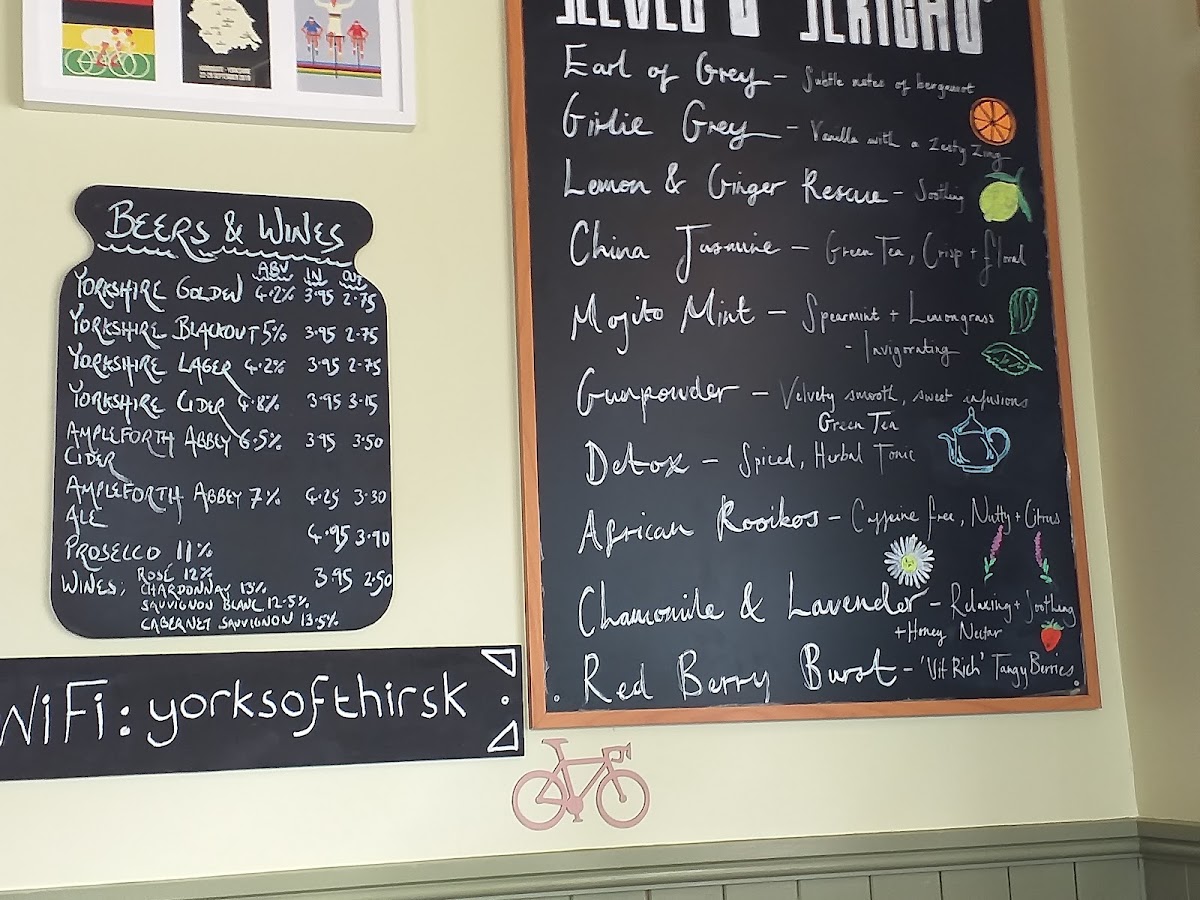 BEERS & WINES
ABV IN OUT
YORKSHIRE GOLDEN 4.2% 3.95 2.75
YORKSHIRE BLACKOUT 5% 3.95 2.75
YORKSHIRE LAGER 4.2% 3.95 2.75
YORKSHIRE CIDER 4.8% 3.95 3.15
AMPLEFORTH ABBEY 6.5% 3.95 3.50
CIDER
AMPLEFORTH ABBEY 7% 4.25 3.30
ALE
PROSECCO 11% 4.95 3.90
WINES; ROSÉ 12% 3.95 2.50
CHARDONNAY 13%
SAUVIGNON BLANC 12.5%
CABERNET SAUVIGNON 13.5%
WiFi: yorksofthirsk
JERICHO
Earl of Grey - Subtle notes of bergamot
Girlie Grey - Vanilla with a Zesty Zing
Lemon & Ginger Rescue - Soothing
China Jasmine - Green Tea, Crisp + floral
Mojito Mint - Spearmint + Lemongrass
- Invigorating
Gunpowder - Velvety smooth, sweet infusions
Green Tea
Detox - Spiced, Herbal Tonic
African Rooikos - Caffeine free, Nutty + Citrus
Chamomile & Lavender - Relaxing + Soothing
+ Honey Nectar
Red Berry Burst - 'Vit Rich' Tangy Berries